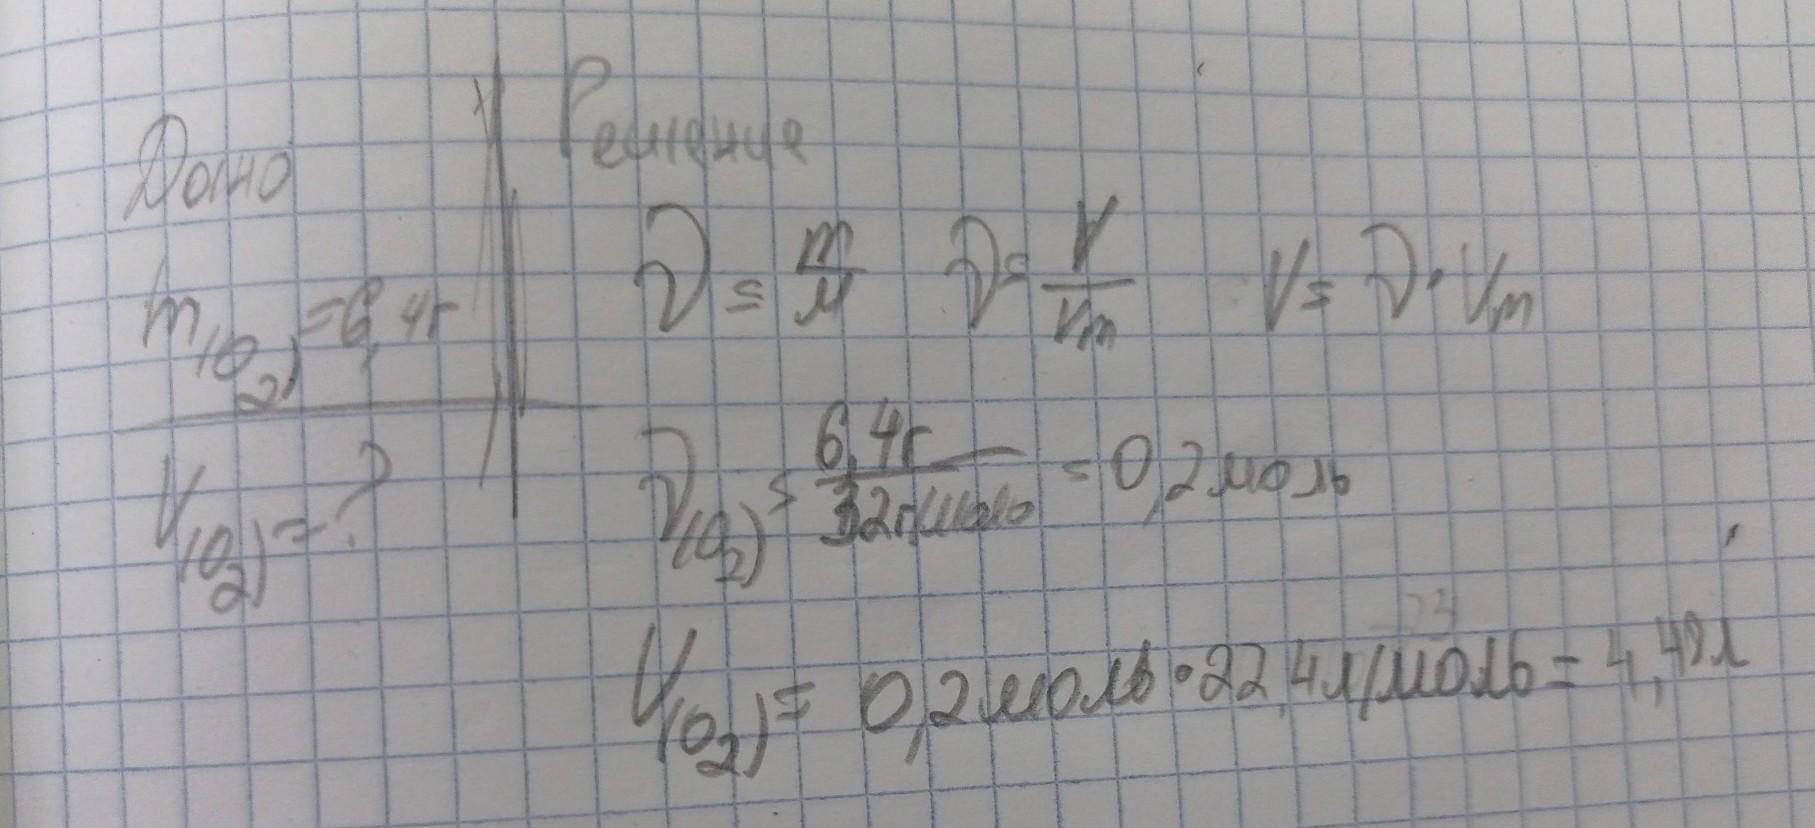 Дано
m(O₂) = 6,4г
V(O₂) = ?
Решение
ν = m/M ν = V/Vm V = ν · Vm
ν(O₂) = 6,4г/32г/моль = 0,2 моль
V(O₂) = 0,2 моль · 22,4 л/моль = 4,48 л